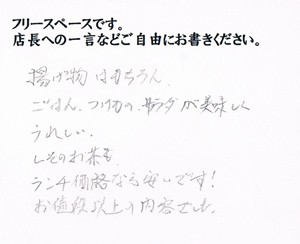 フリースペースです。
店長への一言などご自由にお書きください。
揚げ物はもちろん、
ごはん、つけもの、サラダが美味しく
うれしい。
しそのお茶も
ランチ価格なら安いです!
お値段以上の内容でした。